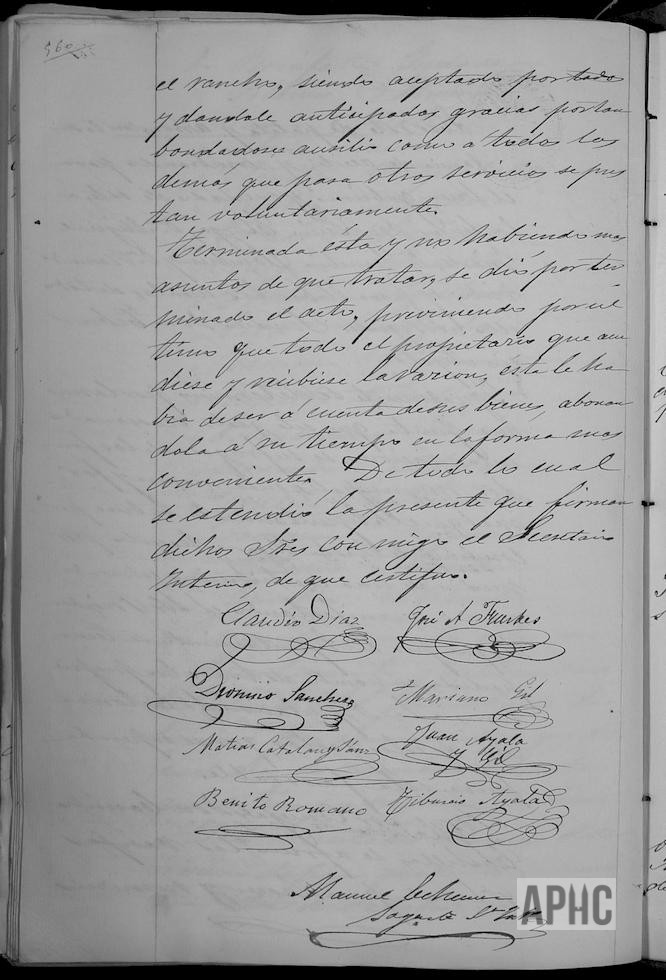 560
el rancho, siendo aceptado por todos
y dandole anticipadas gracias por tan
bondadoso ausilio como á todos los
demás que para otros servicios se pres
tan voluntariamente.
Terminada ésta y no habiendo mas
asuntos de que tratar, se dió por ter
minado el acto, previniendo por úl
timo que todo el propietario que acu
diese y recibiese la racion, ésta le ha
bia de ser á cuenta de sus bienes, abonan
dola á su tiempo en la forma mas
conveniente. De todo lo cual
se estendió la presente que firman
dichos Sres conmigo el Secretario
Interino, de que certifico.
Claudio Diaz José A. Fuentes
Dionisio Sanchez Mariano Gil
Matias Catalan y Sanz Juan Ayala
y Gil
Benito Romano Tiburcio Ayala
Manuel
Sagaste S. Int
APHC